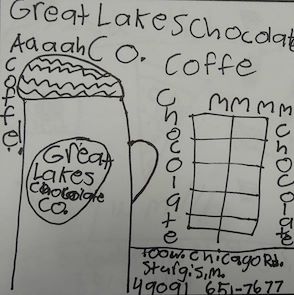 Great Lakes Chocolat
Aaaah Co.
Coffe
Coffe!
Great
Lakes
Chocolate
Co.
Chocolate
MMMM
Chocolate
100w. Chicago Rd.
Sturgis, M.
49091 651-7677